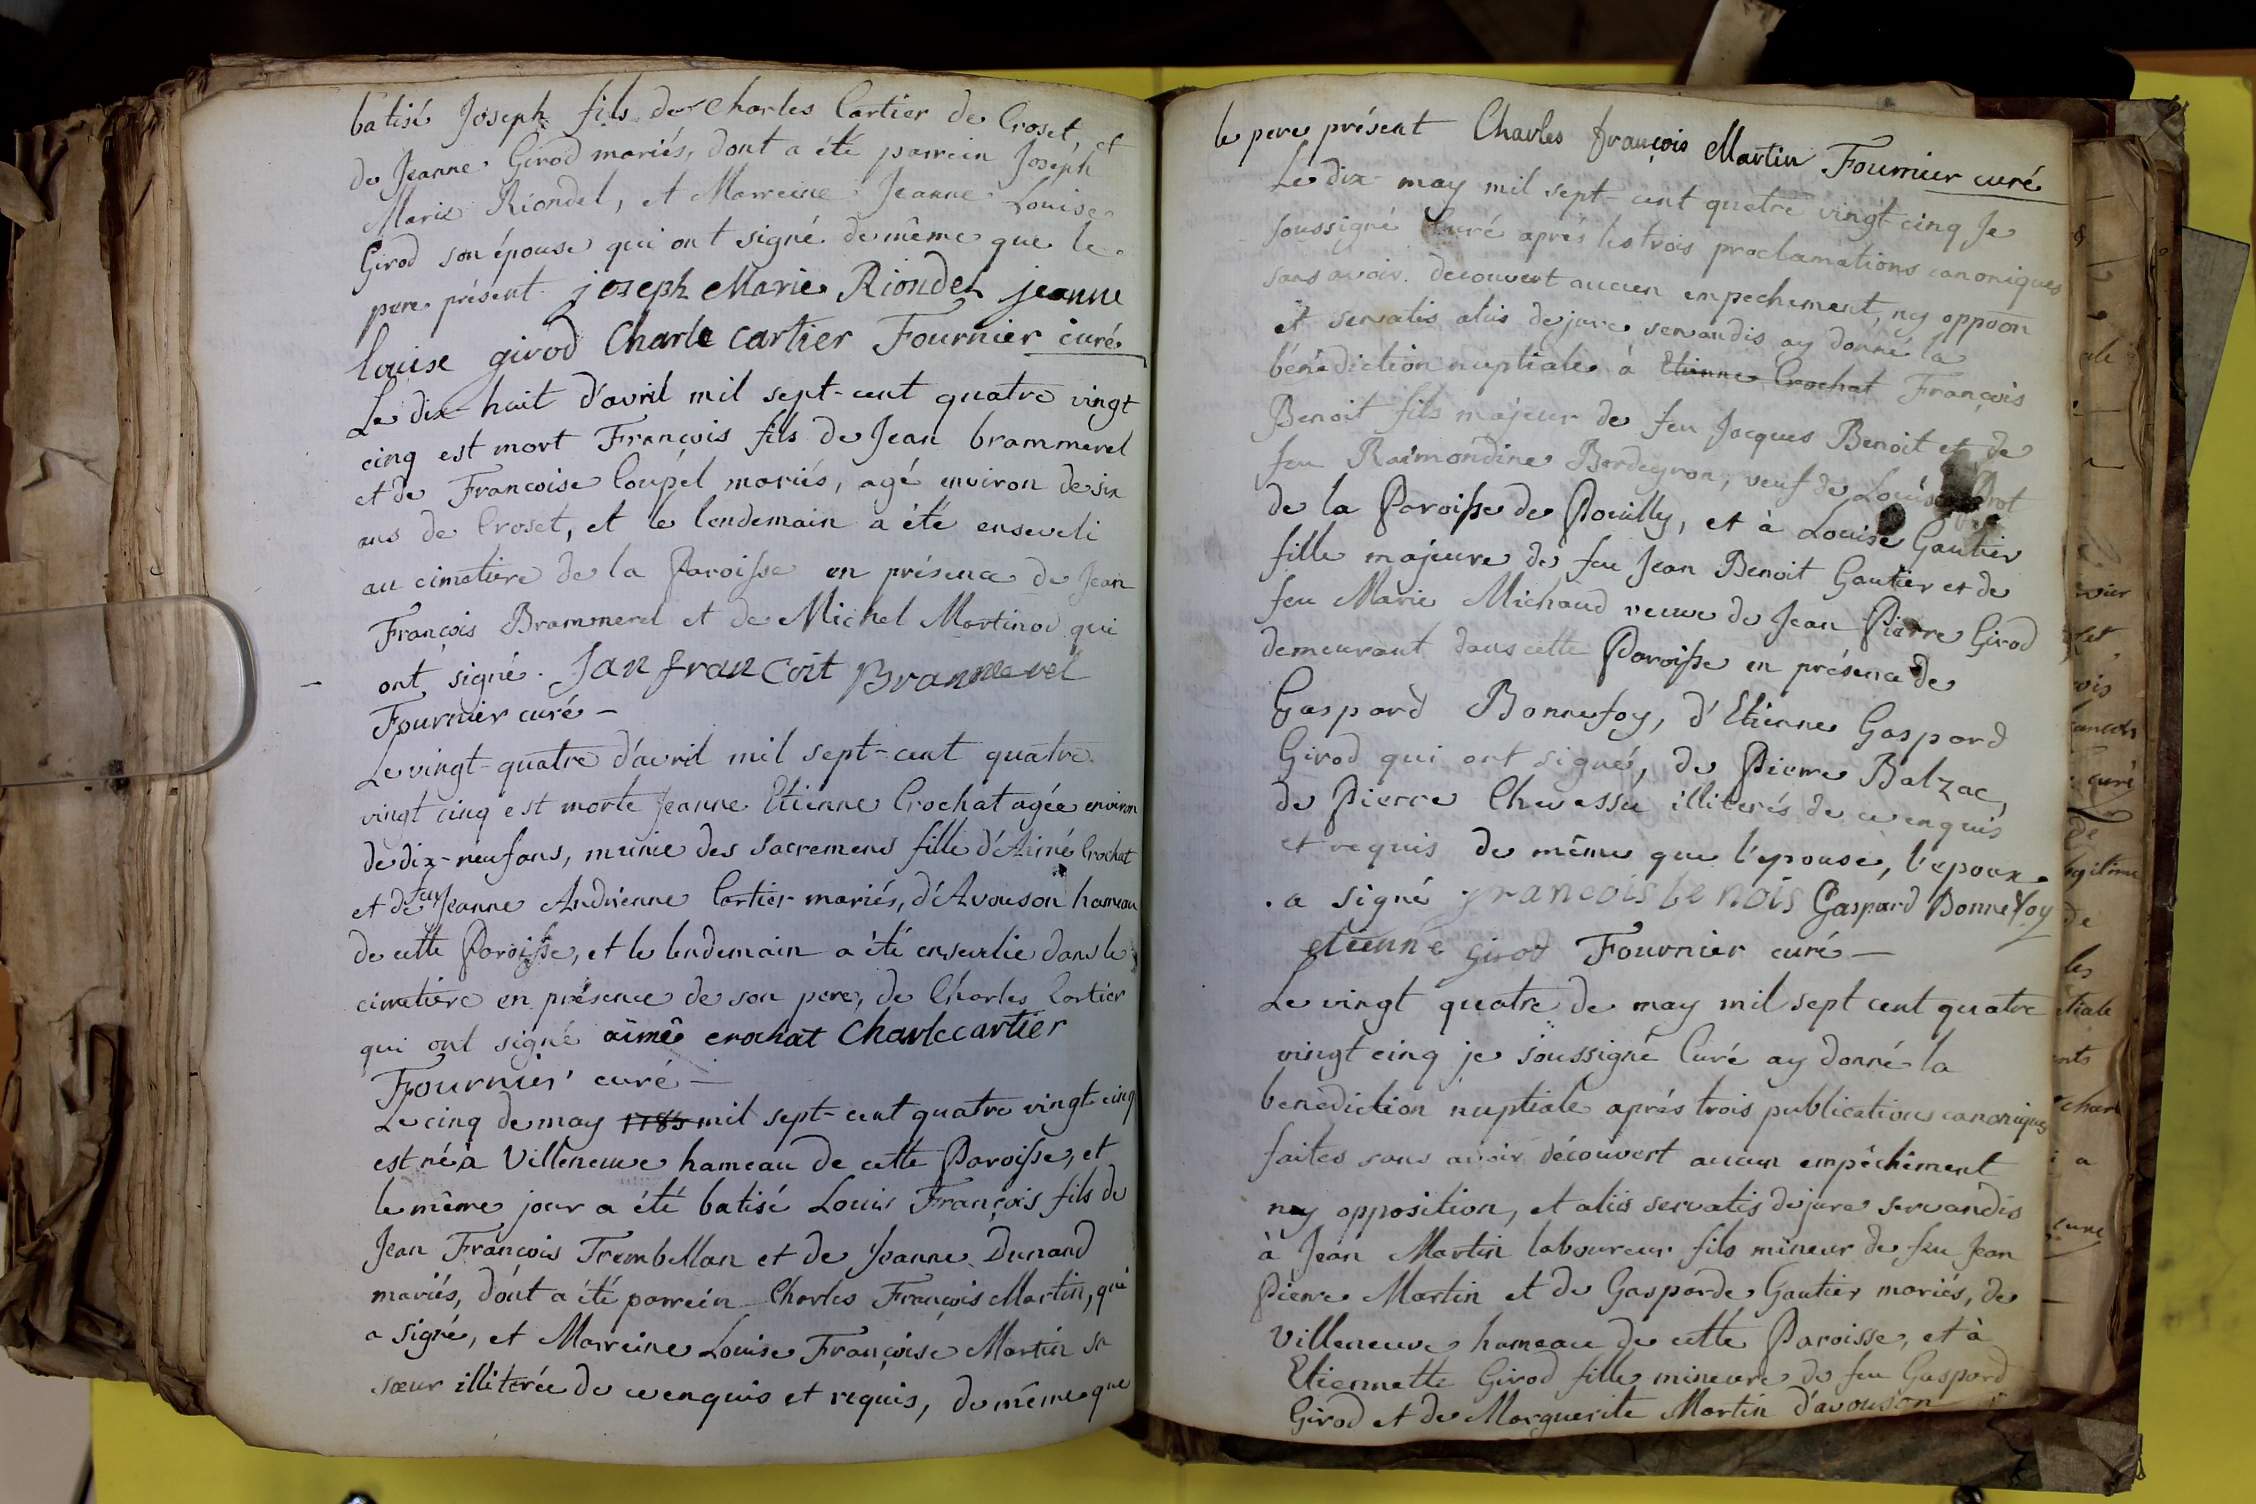 batisé Joseph fils de Charles Cartier de Croset, et
de Jeanne Girod mariés, dont a été parrein Joseph
Marie Riondel, et Marreine Jeanne Louise
Girod son épouse qui ont signé de même que le
pere présent. joseph Marie Riondel jeanne
louise girod Charle cartier Fournier curé
Le dix-huit d'avril mil sept-cent quatre vingt
cinq est mort François fils de Jean brammerel
et de Francoise Coupel mariés, agé environ de six
ans de Croset, et le lendemain a été enseveli
au cimetiere de la Paroisse en présence de Jean
François Brammerel et de Michel Martinod qui
ont signé. Jan francoit Brammerel
Fournier curé —
Le vingt-quatre d'avril mil sept-cent quatre
vingt cinq est morte Jeanne Etienne Crochat agée environ
de dix-neuf ans, munie des sacremens fille d'Aimé Crochat
et de feu Jeanne Andrienne Cartier mariés, d'Avouson hameau
de cette Paroisse, et le lendemain a été ensevelie dans le
cimetiere en présence de son pere, de Charles Cartier
qui ont signé aimé crochat Charle cartier
Fournier curé —
Le cinq de may 1785 mil sept-cent quatre vingt-cinq
est né à Villeneuve hameau de cette Paroisse, et
le même jour a été batisé Louis François fils de
Jean François Trembellan et de Jeanne Dunand
mariés, dont a été parrein Charles François Martin, qui
a signé, et Marreine Louise Françoise Martin sa
sœur illiterée de ce enquis et requis, de même que
le pere présent Charles françois Martin Fournier curé
Le dix may mil sept-cent quatre vingt cinq Je
soussigné Curé après les trois proclamations canoniques
sans avoir decouvert aucun empechement, ny oppoon
et servatis aliis de jure servandis ay donné la
bénédiction nuptiale à Etienne Crochat François
Benoit fils majeur de feu Jacques Benoit et de
feu Raimondine Berdeyron, veuf de Louise
de la Paroisse de Pouilly, et à Louise Gautier
fille majeure de feu Jean Benoit Gautier et de
feu Marie Michaud veuve de Jean Pierre Girod
demeurant dans cette Paroisse en présence de
Gaspard Bonnefoy, d'Etienne Gaspard
Girod qui ont signé, de Pierre Balzac,
de Pierre Chevassu illiterés de ce enquis
et requis de même que l'epouse, l'epoux
a signé francois be nois Gaspard Bonnefoy
etienne girod Fournier curé —
Le vingt quatre de may mil sept cent quatre
vingt cinq je soussigné Curé ay donné la
benediction nuptiale aprés trois publications canoniques
faites sans avoir découvert aucun empêchement
ny opposition, et aliis servatis de jure servandis
à Jean Martin laboureur fils mineur de feu Jean
Pierre Martin et de Gasparde Gautier mariés, de
Villeneuve hameau de cette Paroisse, et à
Etiennette Girod fille mineure de feu Gaspard
Girod et de Marguerite Martin d'avouson